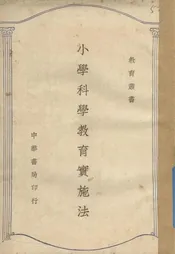 教育叢書
小學科學教育實施法
中華書局印行